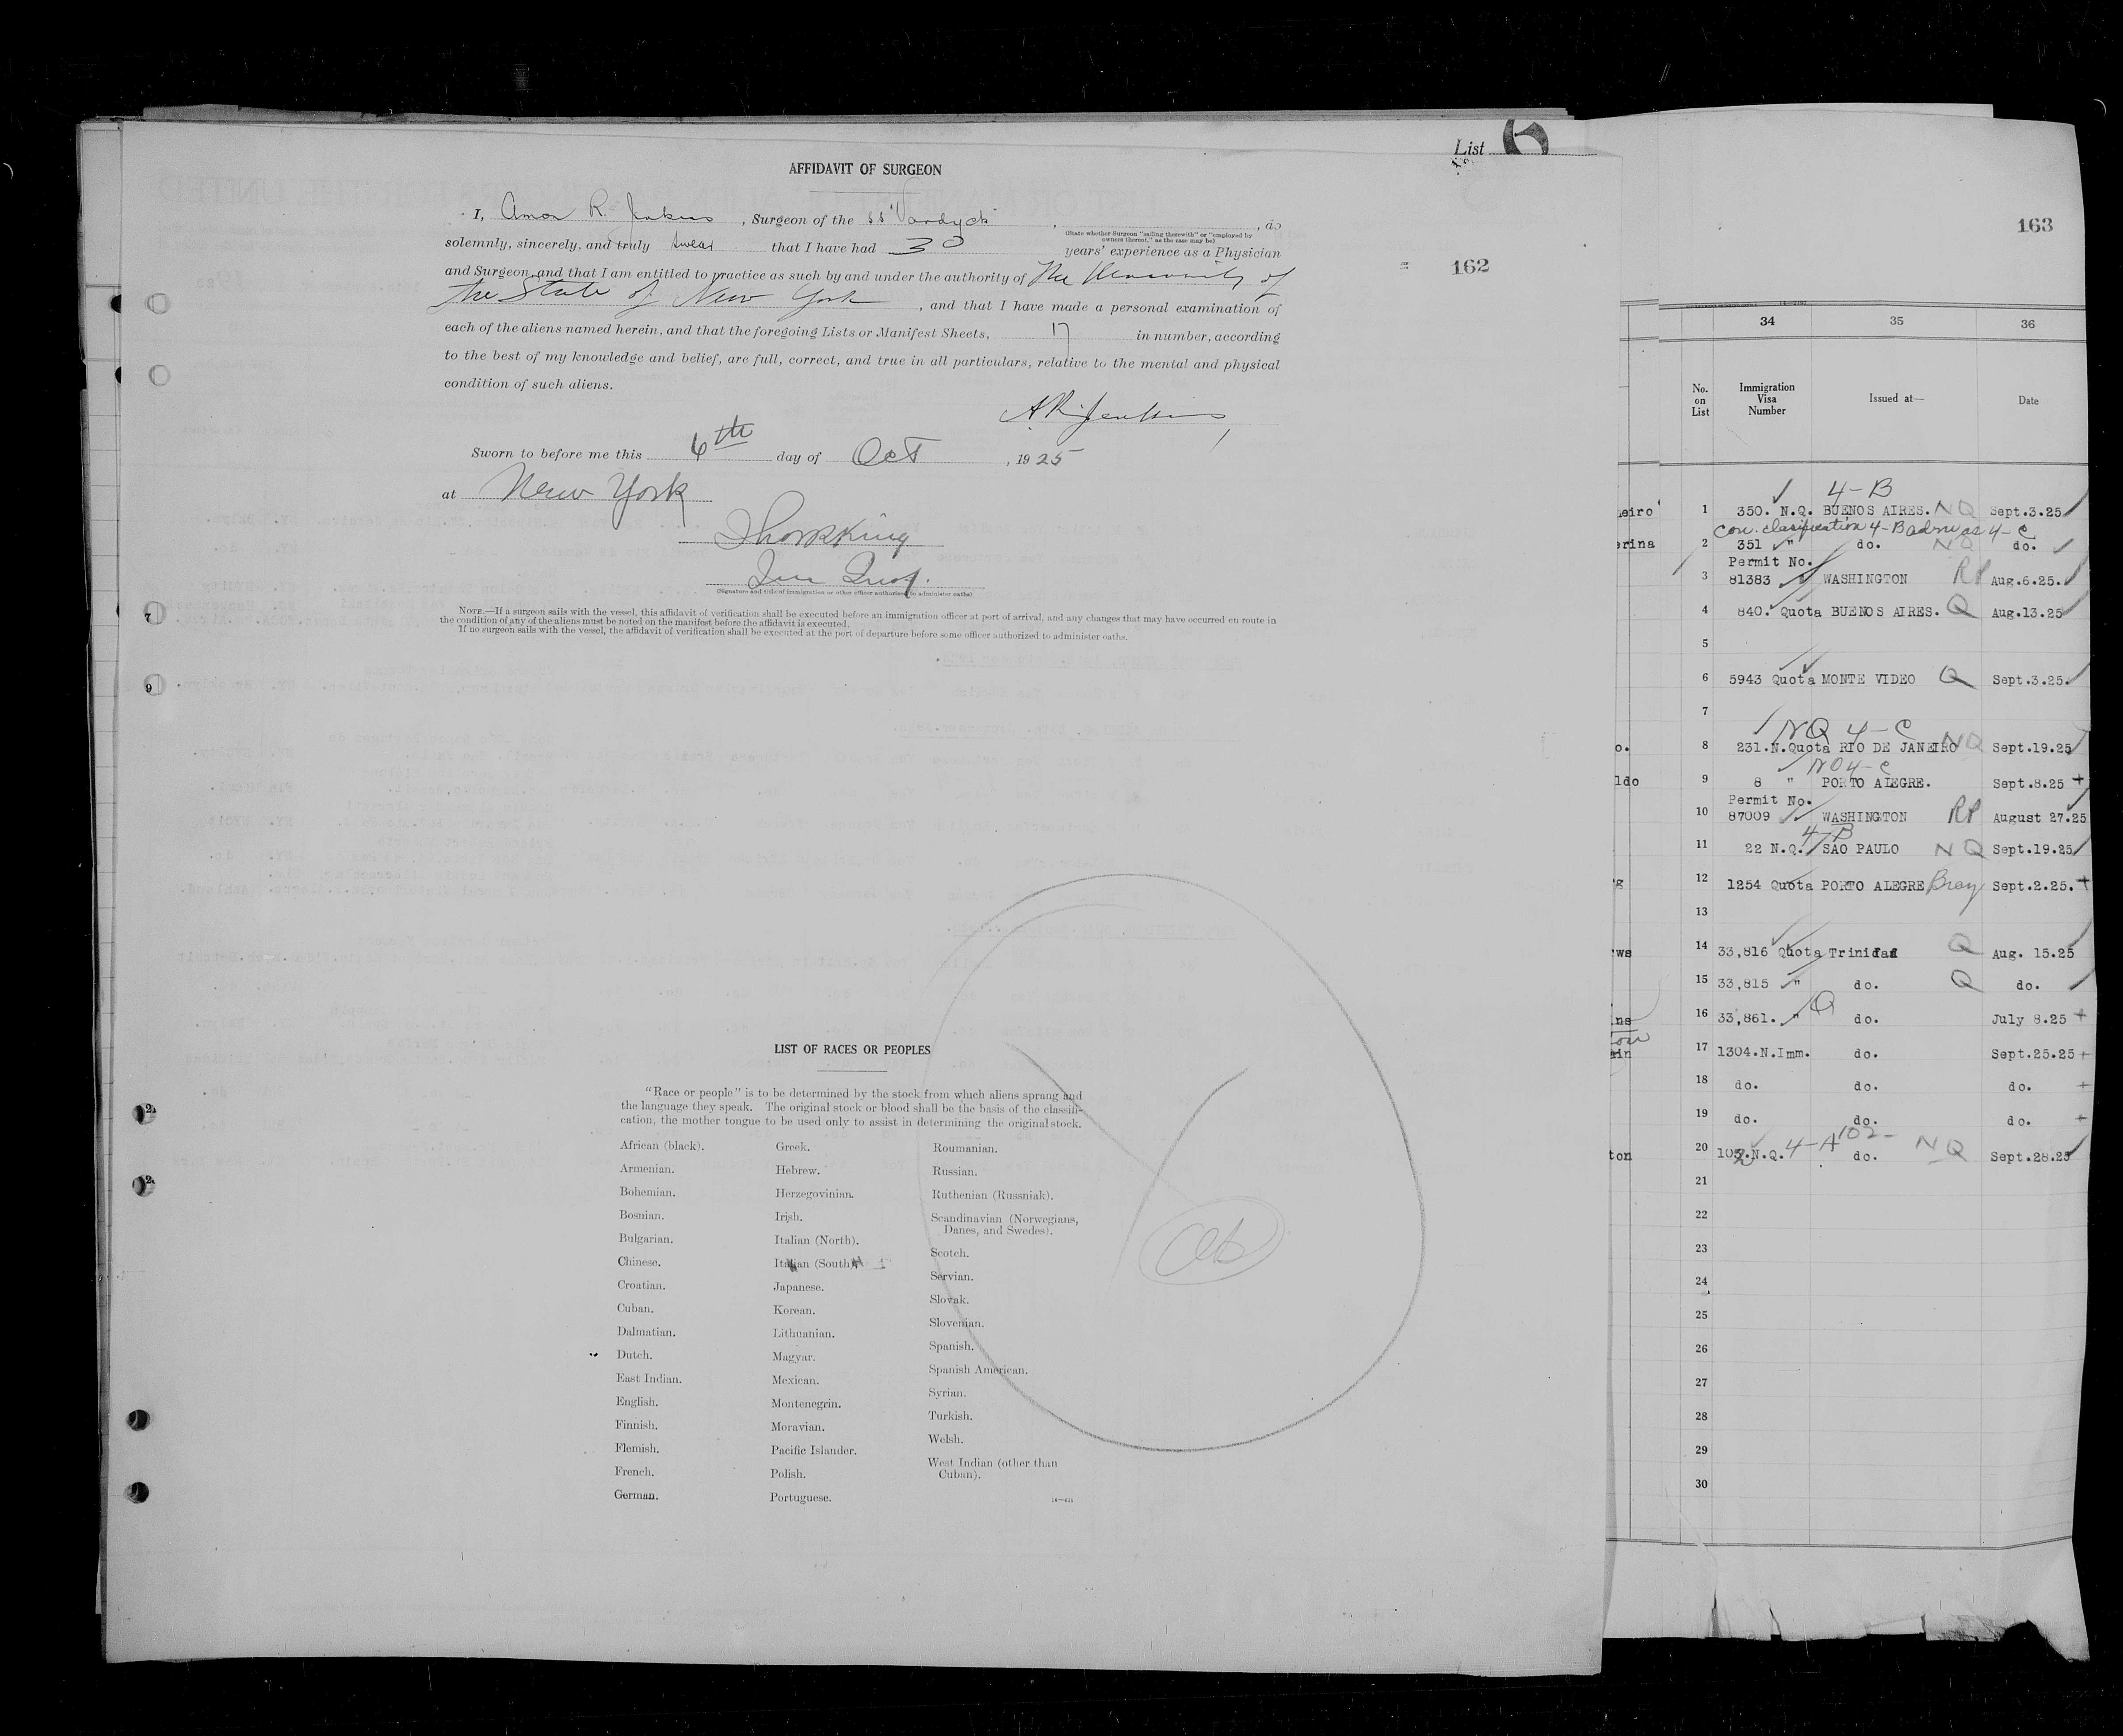 List 6
AFFIDAVIT OF SURGEON
I, Amon R. Jenkins, Surgeon of the SS "Vandyck", do
(State whether Surgeon "sailing therewith" or "employed by
owners thereof," as the case may be)
solemnly, sincerely, and truly swear that I have had 30 years' experience as a Physician
and Surgeon, and that I am entitled to practice as such by and under the authority of The University of
the State of New York, and that I have made a personal examination of
each of the aliens named herein, and that the foregoing Lists or Manifest Sheets, 17 in number, according
to the best of my knowledge and belief, are full, correct, and true in all particulars, relative to the mental and physical
condition of such aliens.
A R Jenkins
Sworn to before me this 6th day of Oct, 1925
at New York
Imm Insp.
(Signature and title of immigration or other officer authorized to administer oaths)
NOTE.—If a surgeon sails with the vessel, this affidavit of verification shall be executed before an immigration officer at port of arrival, and any changes that may have occurred en route in
the condition of any of the aliens must be noted on the manifest before the affidavit is executed.
If no surgeon sails with the vessel, the affidavit of verification shall be executed at the port of departure before some officer authorized to administer oaths.
7
9
LIST OF RACES OR PEOPLES
"Race or people" is to be determined by the stock from which aliens sprang and
the language they speak. The original stock or blood shall be the basis of the classifi-
cation, the mother tongue to be used only to assist in determining the original stock.
African (black).
Armenian.
Bohemian.
Bosnian.
Bulgarian.
Chinese.
Croatian.
Cuban.
Dalmatian.
Dutch.
East Indian.
English.
Finnish.
Flemish.
French.
German.
Greek.
Hebrew.
Herzegovinian.
Irish.
Italian (North).
Italian (South).
Japanese.
Korean.
Lithuanian.
Magyar.
Mexican.
Montenegrin.
Moravian.
Pacific Islander.
Polish.
Portuguese.
Roumanian.
Russian.
Ruthenian (Russniak).
Scandinavian (Norwegians,
Danes, and Swedes).
Scotch.
Servian.
Slovak.
Slovenian.
Spanish.
Spanish American.
Syrian.
Turkish.
Welsh.
West Indian (other than
Cuban).
162
163
34 35 36
No. on List
Immigration Visa Number
Issued at—
Date
4-B
eiro 1 350. N.Q. BUENOS AIRES. NQ Sept.3.25
Con. clasification 4-B adm as 4-C
erina 2 351 " do. NQ do.
Permit No.
3 81383 WASHINGTON RP Aug.6.25.
4 840. Quota BUENOS AIRES. Q Aug.13.25
5
6 5943 Quota MONTE VIDEO Q Sept.3.25.
7
NQ 4-C
o. 8 231.N.Quota RIO DE JANEIRO NQ Sept.19.25
NQ 4-C
ldo 9 8 " PORTO ALEGRE. Sept.8.25 +
Permit No.
10 87009 WASHINGTON RP August 27.25
4/B
11 22 N.Q. SAO PAULO NQ Sept.19.25
g 12 1254 Quota PORTO ALEGRE Sept.2.25. +
13
rws 14 33,816 Quota Trinidad Q Aug. 15.25
15 33,815 " do. Q do.
Q
ins 16 33,861. " do. July 8.25 +
ain 17 1304.N.Imm. do. Sept.25.25 +
18 do. do. do. +
19 do. do. do. +
102-
ton 20 N.Q. 4-A do. NQ Sept.28.25
21
22
23
24
25
26
27
28
29
30